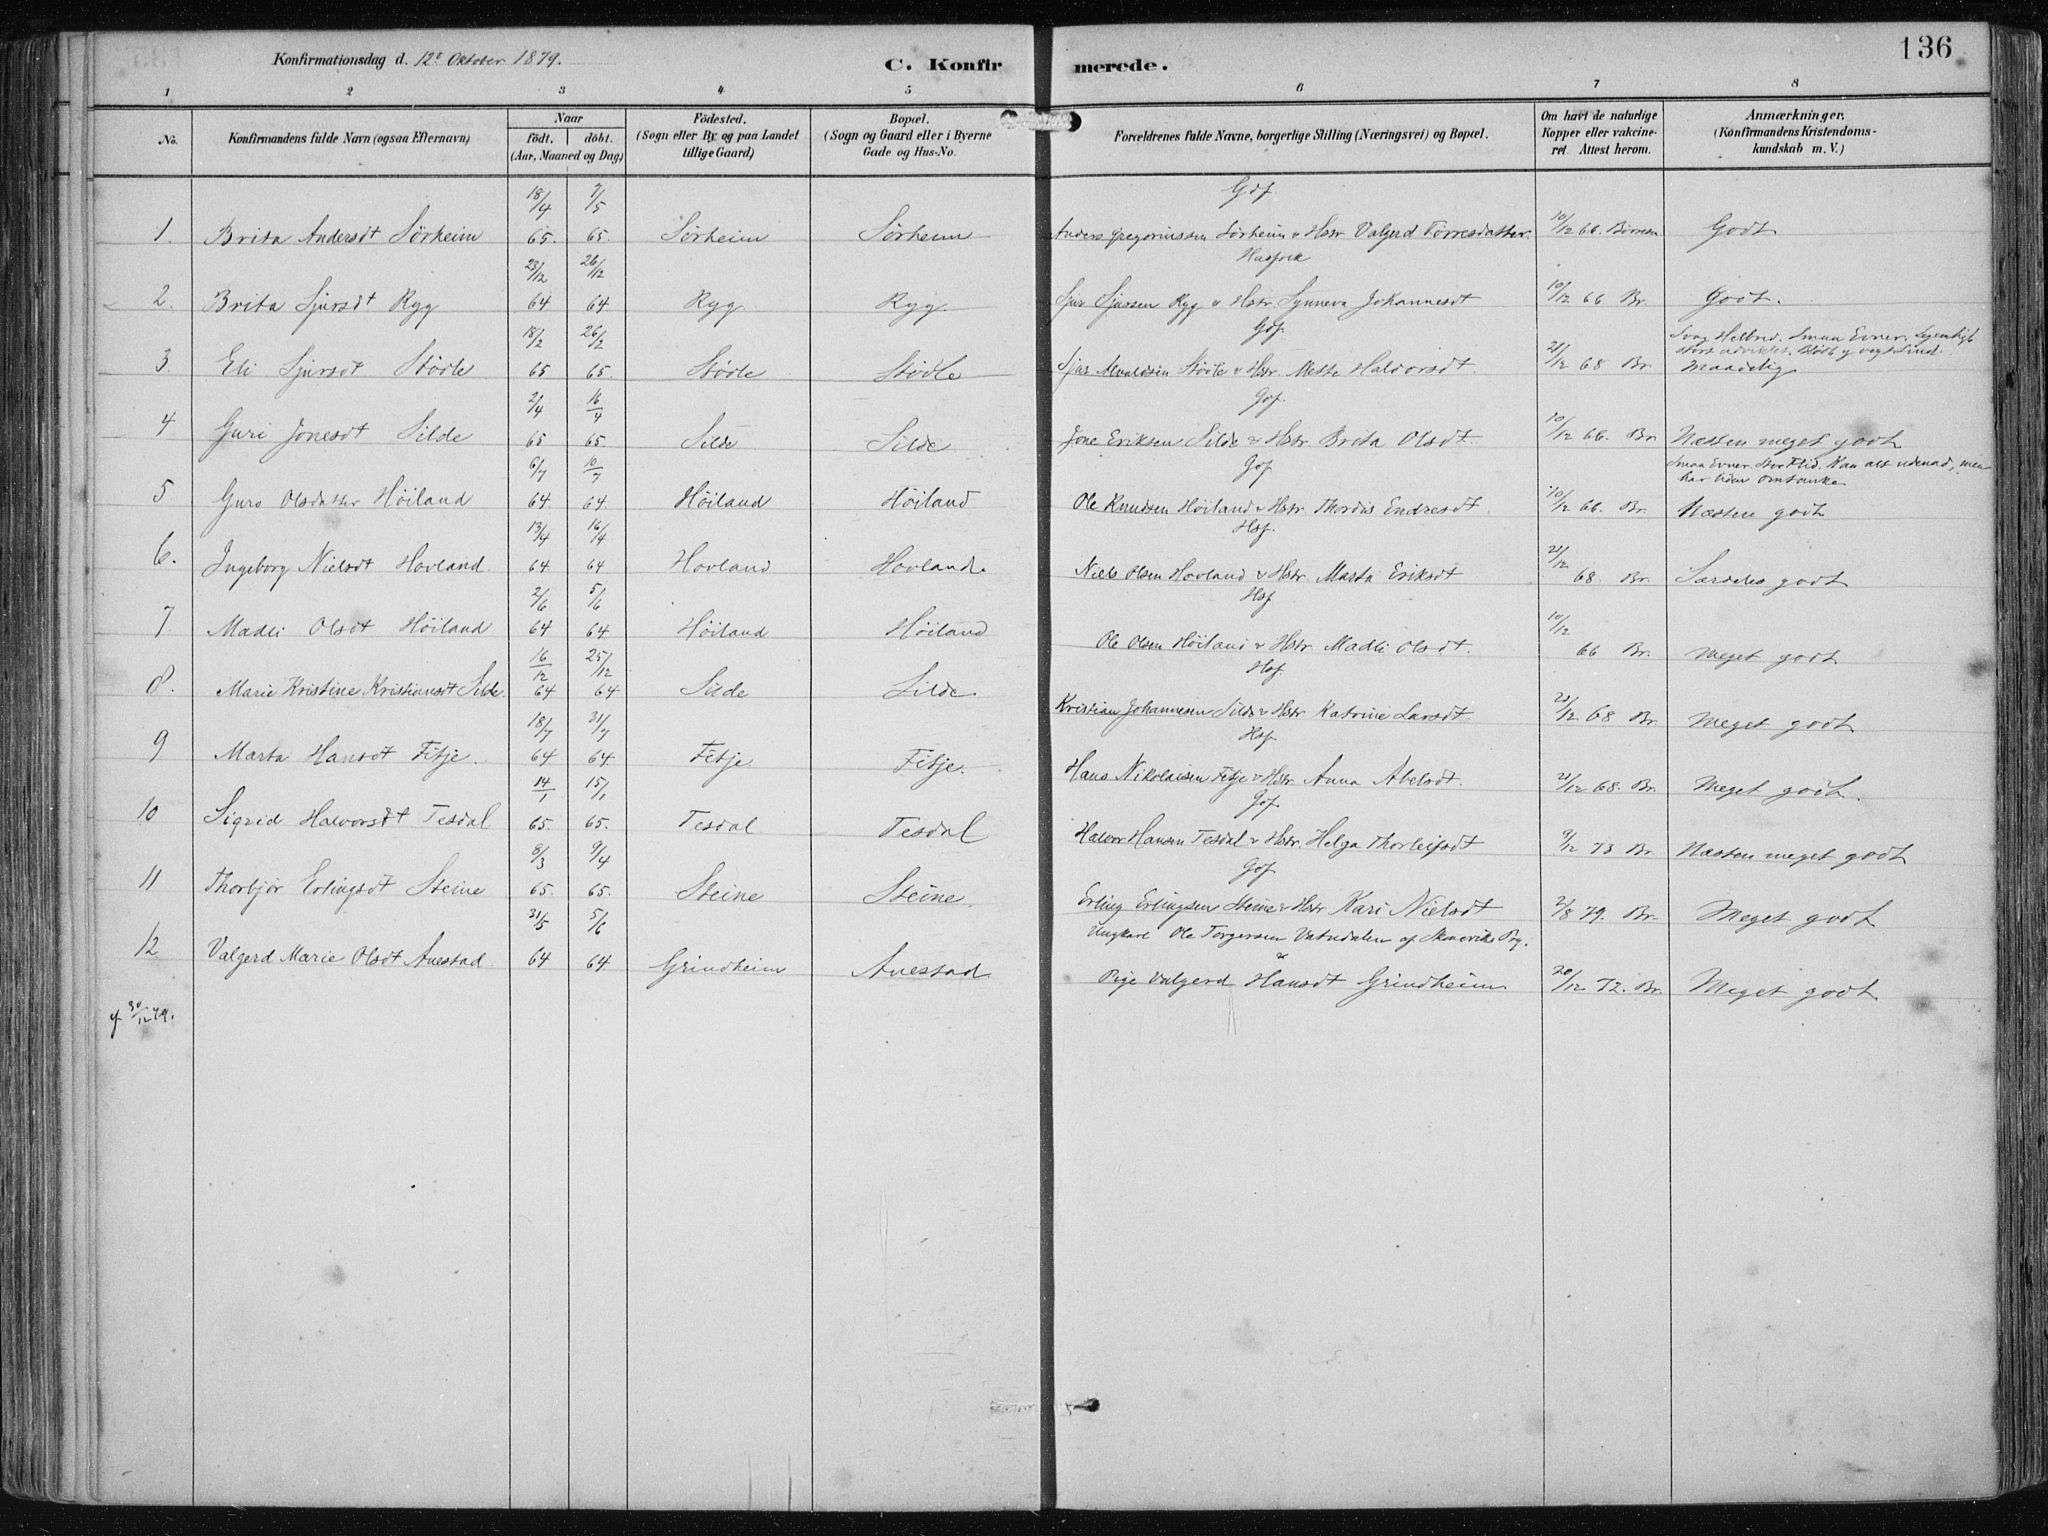 Konfirmationsdag d. 12te Oktober 1879. C. Konfirmerede. 136
1 2 3 4 5 6 7 8
No. Konfirmandens fulde Navn (ogsaa Efternavn) Naar født. døbt. (Aar, Maaned og Dag) Fødested. (Sogn eller By og paa Landet tillige Gaard) Bopæl. (Sogn og Gaard eller i Byerne Gade og Hus-No. Forældrenes fulde Navne, borgerlige Stilling (Næringsvei) og Bopæl. Om havt de naturlige Kopper eller vakcineret. Attest herom. Anmærkninger. (Konfirmandens Kristendomskundskab m. V.)
1. Brita Andersdt Sørheim 18/4 65. 7/5 65. Sørheim Sørheim Gdf. Anders Gregoriussen Sørheim & Hstr. Valgerd Torresdatter. 10/12 66. Børresen Godt
2. Brita Sjursdt Ryg 23/12 64 26/12 64. Ryg. Ryg. Husfolk Sjur Sjursen Ryg & Hstr. Synneva Johannesdt 10/12 66 Br. Godt.
3. Eli Sjursdt Stødle 18/2 65 26/2 65. Stødle Stødle Gdf. Sjur Stødle & Hstr. Mette Halvorsdt. 21/12 68 Br. Svag Helbred. Smaa Evner. Maadelig
4 Guri Jonesdt Silde 2/4 65 16/4 65. Silde Silde. Gdf. Jone Eriksen Silde & Hstr. Brita Olsdt. 10/12 66. Br. Næsten meget godt
5 Guro Olsdatter Høiland 6/7 64. 10/7 64. Høiland Høiland Gdf Ole Knudsen Høiland & Hstr. Thordis Endresdt. 10/12 66. Br. Smaa Evner. Stor Flid. Kan alt udenad, men har liden omtanke. Næsten godt
6. Ingeborg Nielsdt Hovland. 13/4 64 16/4 64. Hovland Hovland. Hsf. Niels Olsen Hovland & Hstr. Marta Eriksdt 21/12 68. Br. Særdeles godt
7. Madli Olsdt Høiland 2/6 64 5/6 64 Høiland Høiland Hsf Ole Olsen Høiland & Hstr. Madli Olsdt. 10/12 66 Br. Meget godt
8. Marie Kristine Kristiansdt Silde. 16/12 64 25/12 64 Silde Silde. Hsf. Kristian Johannesen Silde & Hstr. Katrine Larsdt. 21/12 68 Br. Meget godt
9 Marta Hansdt Fitje. 18/7 64 31/7 64. Fitje Fitje. Hsf. Hans Nikolaisen Fitje & Hstr. Anna Abelsdt. 21/12 68. Br. Meget godt.
10 Sigrid Halvorsdt Tesdal 14/1 65. 15/1 65. Tesdal Tesdal Gdf. Halvor Hansen Tesdal & Hstr. Helga Thorleifsdt 9/12 73 Br. Næsten meget godt
11 Thorbjør Erlingsdt Steine 8/3 65. 9/4 65. Steine Steine. Gdf Erling Erlingsen Steine & Hstr Kari Nielsdt 2/8 79. Br. Meget godt
12 Valgerd Marie Olsdt Anestad. 31/5 64 5/6 64. Grindheim Anestad Ungkarl Ole Torgersen Vatndalen af Skonevik Prg. & Pige Valgerd Hansdt Grindheim. 20/12 72. Br. Meget godt
30/12 79.